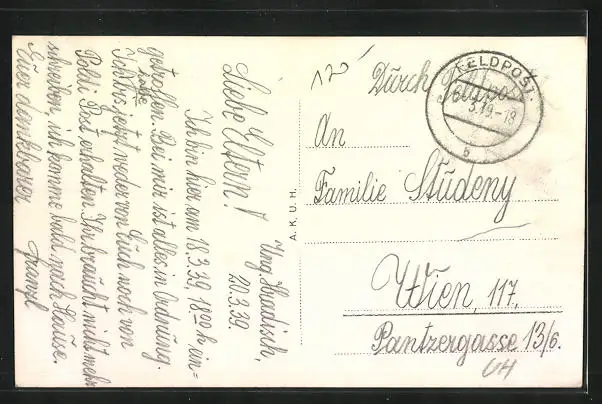 Ung. Hradisch,
20.3.39.
Liebe Eltern!
Ich bin hier am 18.3.39, 18⁰⁰ h ein=
getroffen. Bei mir ist alles in Ordnung.
Ich habe bis jetzt weder von Euch noch von
Poldi Post erhalten. Ihr braucht nicht mehr
schreiben, ich komme bald nach Hause.
Euer dankbarer
Franzl
A. K. U. H.
120
Durch Feldpost
FELDPOST.
3.39.-18
b
An
Familie Studeny
Wien, 117,
Pantzergasse 13/6.